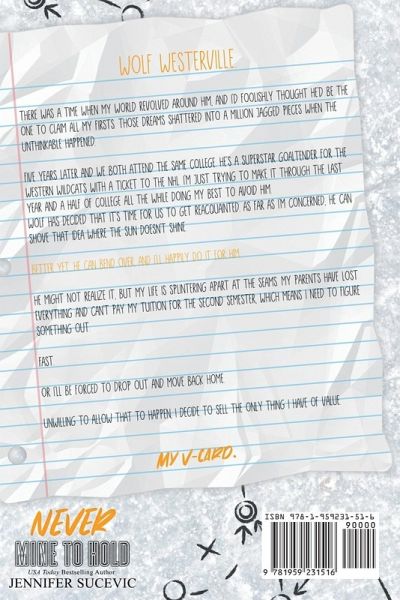 WOLF WESTERVILLE
THERE WAS A TIME WHEN MY WORLD REVOLVED AROUND HIM, AND I'D FOOLISHLY THOUGHT HE'D BE THE
ONE TO CLAIM ALL MY FIRSTS. THOSE DREAMS SHATTERED INTO A MILLION JAGGED PIECES WHEN THE
UNTHINKABLE HAPPENED.
FIVE YEARS LATER AND WE BOTH ATTEND THE SAME COLLEGE. HE'S A SUPERSTAR GOALTENDER FOR THE
WESTERN WILDCATS WITH A TICKET TO THE NHL. I'M JUST TRYING TO MAKE IT THROUGH THE LAST
YEAR AND A HALF OF COLLEGE ALL THE WHILE DOING MY BEST TO AVOID HIM.
WOLF HAS DECIDED THAT IT'S TIME FOR US TO GET REACQUAINTED. AS FAR AS I'M CONCERNED, HE CAN
SHOVE THAT IDEA WHERE THE SUN DOESN'T SHINE.
BETTER YET, HE CAN BEND OVER AND I'LL HAPPILY DO IT FOR HIM.
HE MIGHT NOT REALIZE IT, BUT MY LIFE IS SPLINTERING APART AT THE SEAMS. MY PARENTS HAVE LOST
EVERYTHING AND CAN'T PAY MY TUITION FOR THE SECOND SEMESTER, WHICH MEANS I NEED TO FIGURE
SOMETHING OUT.
FAST.
OR I'LL BE FORCED TO DROP OUT AND MOVE BACK HOME.
UNWILLING TO ALLOW THAT TO HAPPEN, I DECIDE TO SELL THE ONLY THING I HAVE OF VALUE.
MY V-CARD.
NEVER
MINE TO HOLD
USA Today Bestselling Author
JENNIFER SUCEVIC
ISBN 978-1-959231-51-6
90000
9 781959 231516